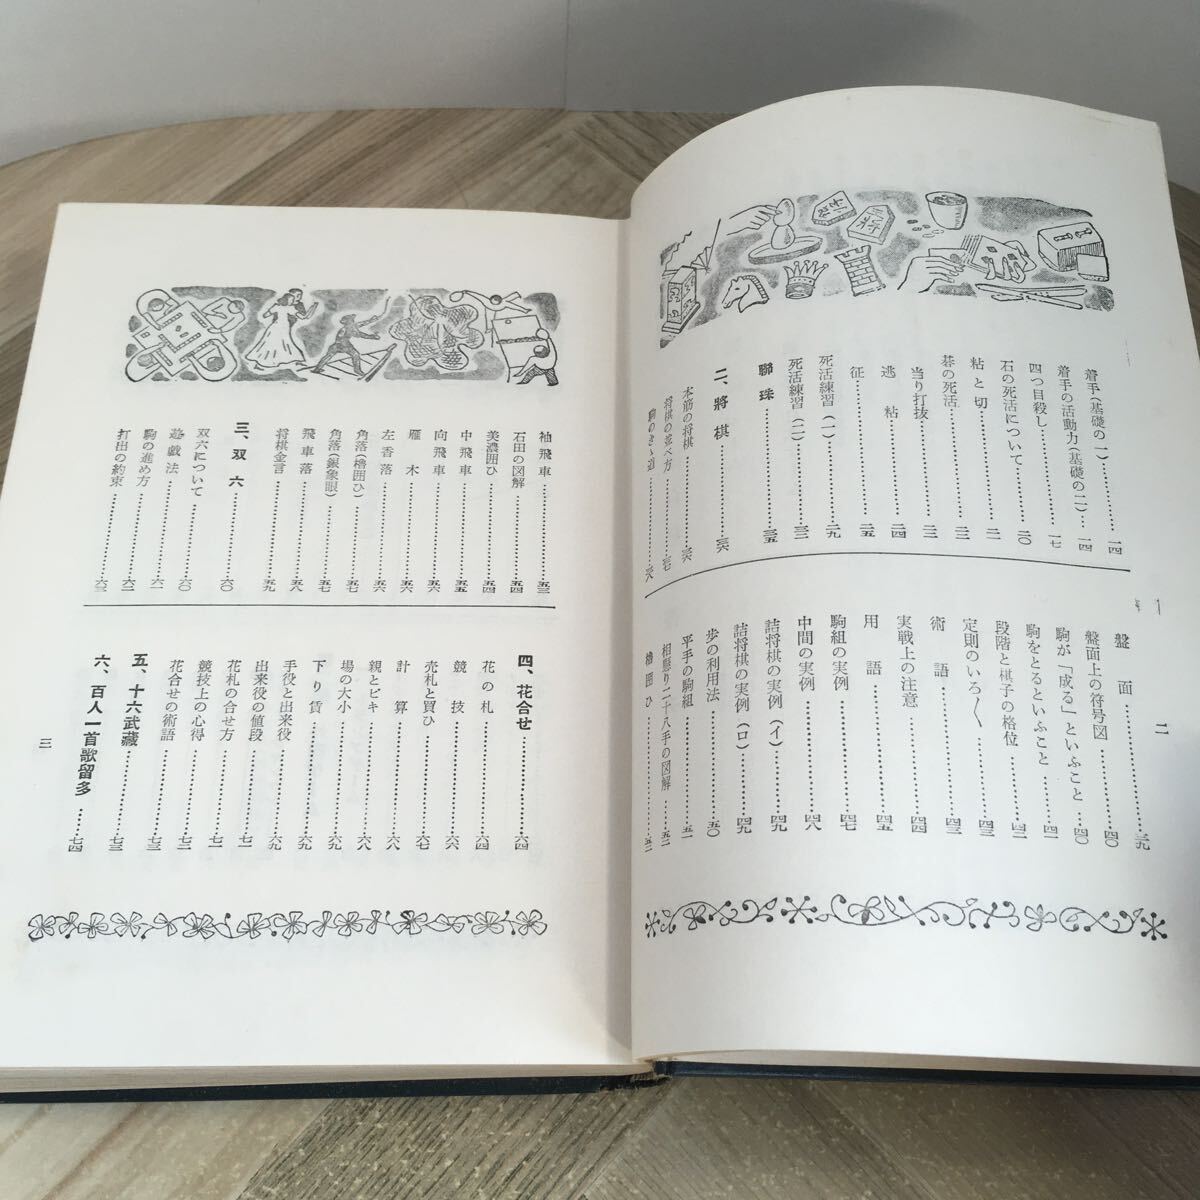 着手(基礎の一)……一四
着手の活動力(基礎の二)……一四
四つ目殺し……一七
石の死活について……二〇
粘と切……二一
碁の死活……二三
当り打抜……二三
逃粘……二四
征……二五
死活練習(一)……二九
死活練習(二)……三三
聯珠……三五
二、將棋……三六
本筋の将棋……三六
将棋の並べ方……三七
駒のきゝ道……三八
盤面……三九
盤面上の符号図……四〇
駒が「成る」といふこと……四〇
駒をとるといふこと……四一
段階と棋子の格位……四二
定則のいろ〱……四三
術語……四三
実戦上の注意……四四
用語……四五
駒組の実例……四七
中間の実例……四八
詰将棋の実例(イ)……四九
詰将棋の実例(ロ)……四九
歩の利用法……五〇
平手の駒組……五一
相懸り二十八手の図解……五二
櫓囲ひ……五三
二
袖飛車……五三
石田の図解……五四
美濃囲ひ……五四
中飛車……五五
向飛車……五六
雁木……五六
左香落……五六
角落(櫓囲ひ)……五七
角落(銀象眼)……五七
飛車落……五八
将棋金言……五九
三、双六……六〇
双六について……六〇
遊戯法……六〇
駒の進め方……六一
打出の約束……六二
四、花合せ……六四
花の札……六四
競技……六六
売札と買ひ……六七
計算……六八
親とビキ……六八
場の大小……六九
下り賃……六九
手役と出来役……六九
出来役の値段……六九
花札の合せ方……七一
競技上の心得……七一
花合せの術語……七二
五、十六武蔵……七三
六、百人一首歌留多……七四
三